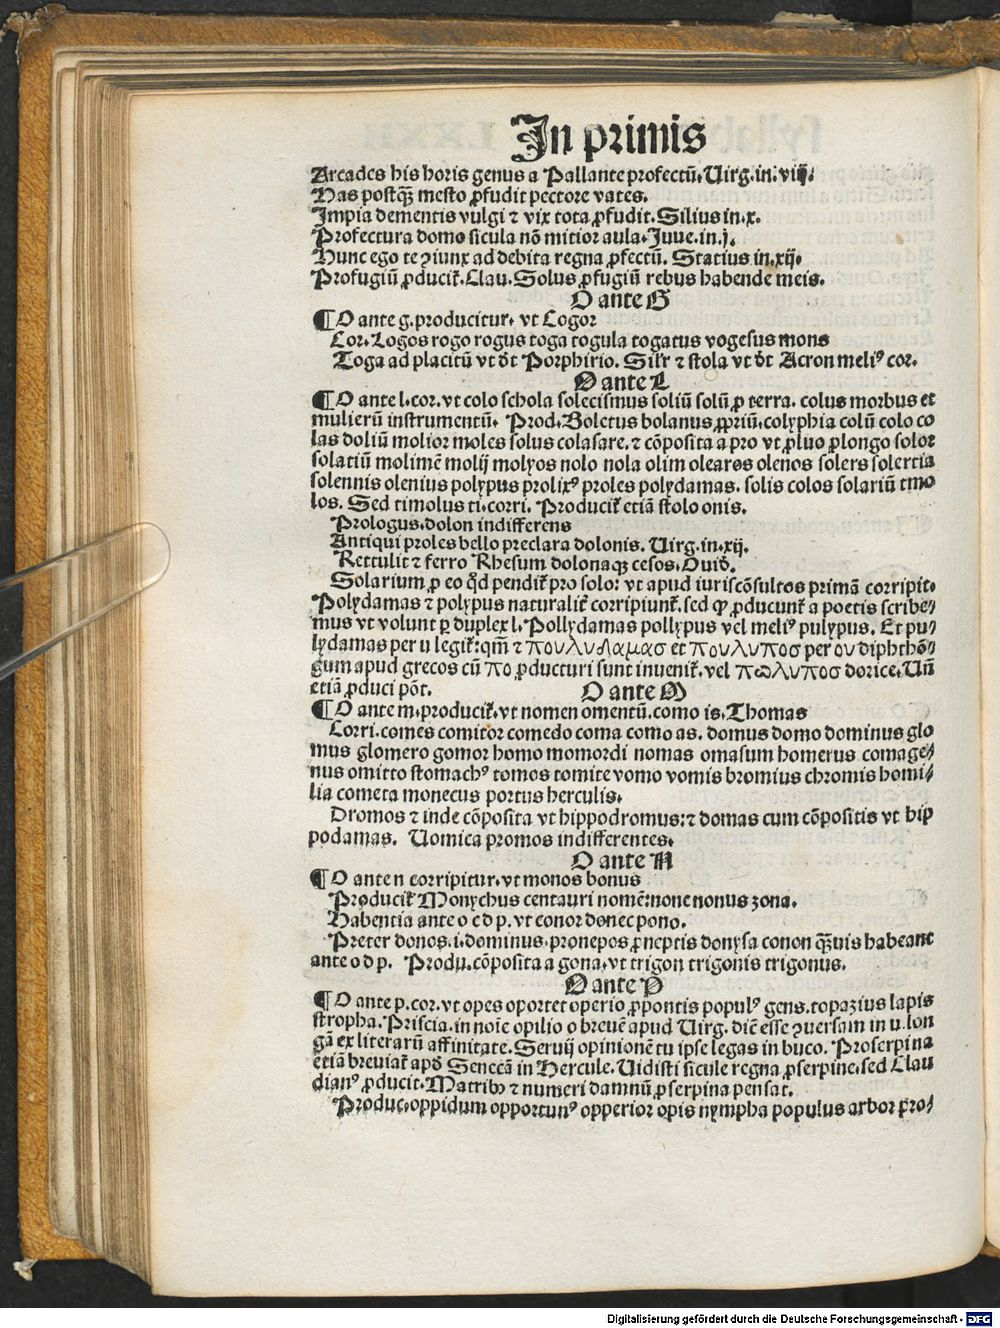 In primis
Arcades his horis genus a Pallante profectū. Uirg. in. viij.
Has postq̄ꝫ mesto ꝓfudit pectore vates.
Impia dementis vulgi ⁊ vix tota ꝓfudit. Silius in. x.
Profectura domo sicula nō mitior aula. Juve. in. j.
Hunc ego te ꝯiunx ad debita regna ꝓfectū. Statius in. xij.
Profugiū ꝓducit̄. Clau. Solus ꝓfugiū rebus habende meis.
O ante G
¶ O ante g. producitur. vt Cogor
Cor. Logos rogo rogus toga togula togatus vogesus mons
Toga ad placitū vt d̄t Porphirio. Sil'r ⁊ stola vt d̄t Acron meliꝰ cor.
O ante L
¶ O ante l. cor. vt colo schola solecismus soliū solū ꝓ terra. colus morbus et
mulierū instrumentū. Prod. Boletus bolanus ꝓpriū. colyphia colū colo co
las doliū molior moles solus colasare. ⁊ cōposita a pro vt ꝓluo ꝓlongo solor
solatiū molimē molij molyos nolo nola olim olearos olenos solers solertia
solennis olenius polypus prolixꝰ proles polydamas. solis colos solariū tmo
los. Sed timolus ti. corri. Producit̄ etiā stolo onis.
Prologus. dolon indifferens
Antiqui proles bello preclara dolonis. Uirg. in. xij.
Rettulit ⁊ ferro Rhesum dolonaqꝫ cesos. Ouid.
Solarium ꝓ eo q̊d pendit̄ pro solo: vt apud iuriscōsultos primā corripit.
Polydamas ⁊ polypus naturalit̄ corripiunt̄. sed qꝫ ꝓducunt̄ a poetis scribe/
mus vt volunt ꝑ duplex l. Pollydamas pollypus vel meliꝰ pulypus. Et pu/
lydamas per u legit̄: qm̄ ⁊ πουλυδαμασ et πουλυποσ per ου diphthō/
gum apud grecos cū πο ꝓducturi sunt inuenit̄. vel πωλυποσ dorice. Un̄
etiā ꝓduci pōt.
O ante M
¶ O ante m. producit̄. vt nomen omentū. como is. Thomas
Corri. comes comitor comedo coma como as. domus domo dominus glo
mus glomero gomor homo momordi nomas omasum homerus comage/
nus omitto stomachꝰ tomos tomite vomo vomis bromius chromis homi/
lia cometa monecus portus herculis.
Dromos ⁊ inde cōposita vt hippodromus: ⁊ domas cum cōpositis vt hip
podamas. Uomica promos indifferentes.
O ante N
¶ O ante n corripitur. vt monos bonus
Producit̄ Monychus centauri nomē: none nonus zona.
Habentia ante o c d p. vt conor donec pono.
Preter donos. i. dominus. pronepos ꝓneptis donysa conon q̄ꝫuis habeant
ante o d p. Produ. cōposita a gona. vt trigon trigonis trigonus.
O ante P
¶ O ante p. cor. vt opes oportet operio ꝓpontis populꝰ gens. topazius lapis
stropha. Priscia. in noīe opilio o breuē apud Uirg. diē esse ꝯuersam in u. lon
gā ex literarū affinitate. Seruij opinionē tu ipse legas in buco. Proserpina
etiā breuiat̄ apd̄ Senecā in Hercule. Uidisti sicule regna ꝓserpine. sed Clau
dianꝰ ꝓducit. Matribꝫ ⁊ numeri damnū ꝓserpina pensat.
Produc. oppidum opportunꝰ opperior opis nympha populus arbor pro/
Digitalisierung gefördert durch die Deutsche Forschungsgemeinschaft - DFG